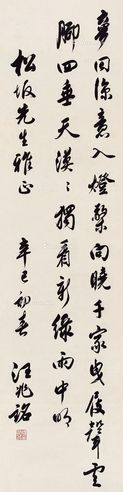 回涼意入燈檠向曉千家曳屐聲雲
腳四垂天漠〻獨看新綠雨中明
松坂先生雅正 辛巳初春 汪兆銘